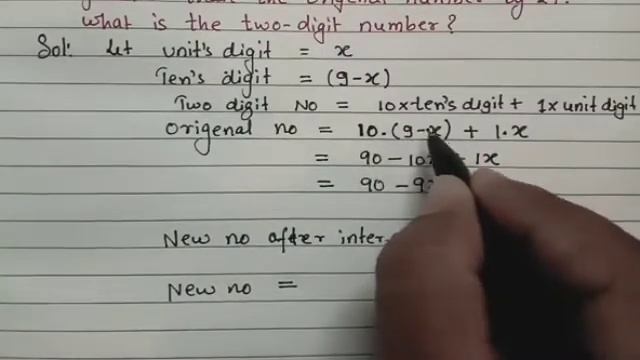 the origenal number by 27.
what is the two-digit number?
Sol: let unit's digit = x
Ten's digit = (9-x)
Two digit No = 10x ten's digit + 1x unit digit
Origenal no = 10.(9-x) + 1.x
= 90 - 10x 1x
= 90 - 9
New no after inter
New no =